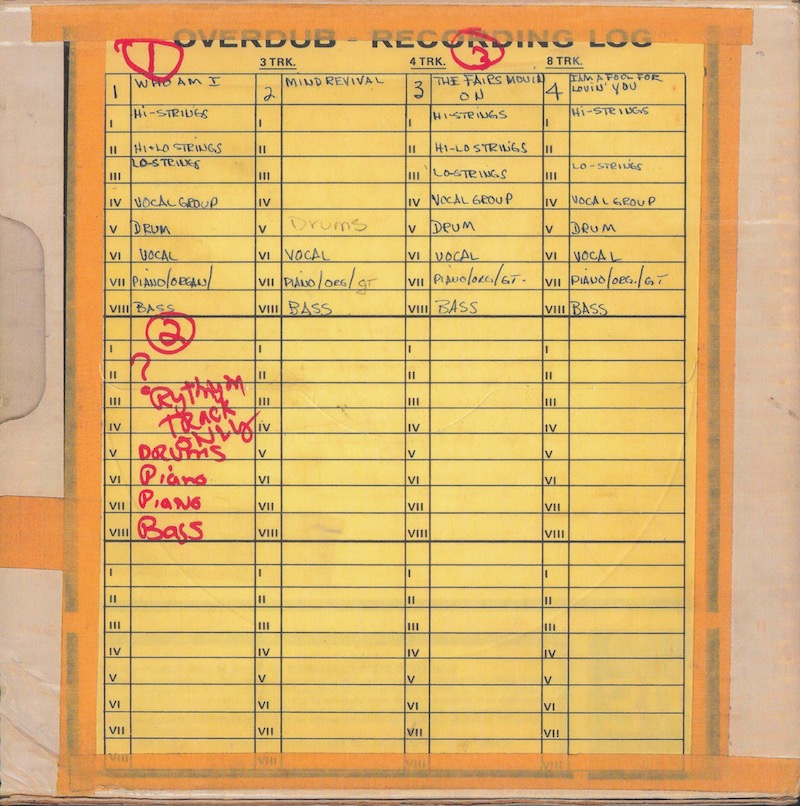 OVERDUB - RECORDING LOG
1 3
3 TRK. 4 TRK. 8 TRK.
1 WHO AM I 2 MIND REVIVAL 3 THE FAIRS MOVIN ON 4 I AM A FOOL FOR LOVIN' YOU
I Hi-STRINGS I I Hi-STRINGS I Hi-STRINGS
II Hi+LO STRINGS II II Hi-LO STRINGS II
III LO-STRINGS III III LO-STRINGS III LO-STRINGS
IV VOCAL GROUP IV IV VOCAL GROUP IV VOCAL GROUP
V DRUM V Drums V DRUM V DRUM
VI VOCAL VI VOCAL VI VOCAL VI VOCAL
VII PIANO/ORGAN/ VII PIANO/ORG/gT VII PIANO/ORG/GT. VII PIANO/ORG./GT
VIII BASS VIII BASS VIII BASS VIII BASS
2
I I I I
II ? II II II
III Rythym III III III
IV TRACK ONLY IV IV IV
V DRUMS V V V
VI Piano VI VI VI
VII PIANO VII VII VII
VIII Bass VIII VIII VIII
I I I I
II II II II
III III III III
IV IV IV IV
V V V V
VI VI VI VI
VII VII VII VII
VIII VIII VIII VIII